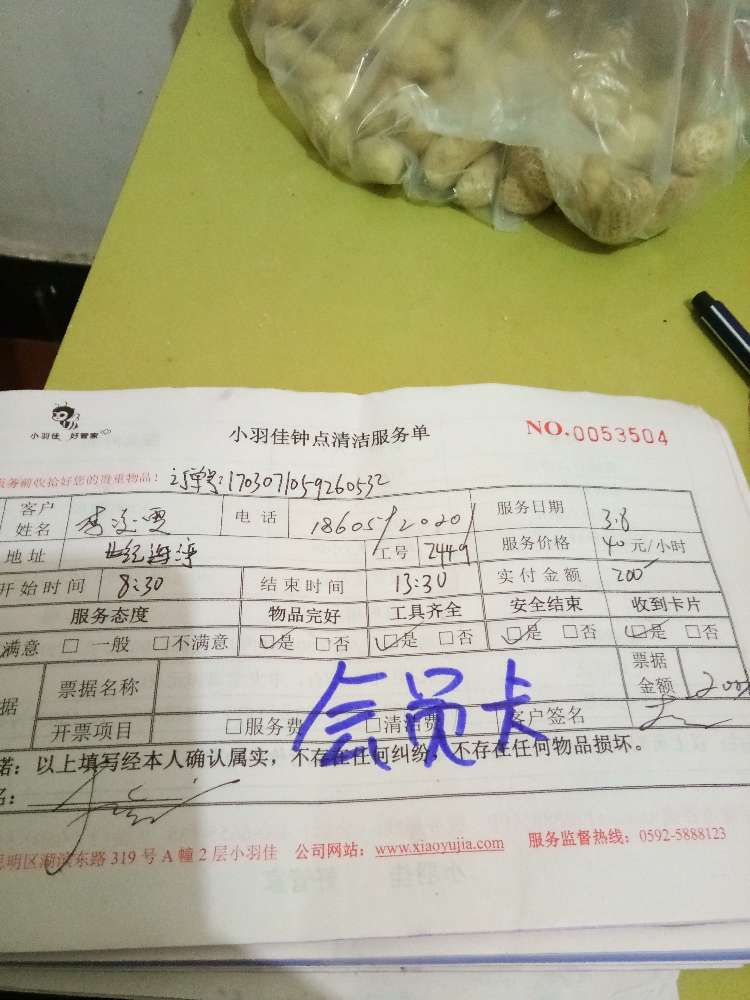 小羽佳 好管家
小羽佳钟点清洁服务单
NO.0053504
服务前收拾好您的贵重物品！ 订单号:1703071059260532
客户姓名 电话 服务日期 3.8
地址 工号 2449 服务价格 40 元/小时
开始时间 8:30 结束时间 13:30 实付金额 200
服务态度 物品完好 工具齐全 安全结束 收到卡片
满意 □ 一般 □不满意 ☑是 □否 ☑是 □否 ☑是 □否 ☑是 □否
据 票据名称 票据金额
开票项目 □服务费 □清洁费 客户签名
会员卡
诺：以上填写经本人确认属实，不存在任何纠纷，不存在任何物品损坏。
思明区湖滨东路 319 号 A 幢 2 层小羽佳 公司网站：www.xiaoyujia.com 服务监督热线：0592-5888123